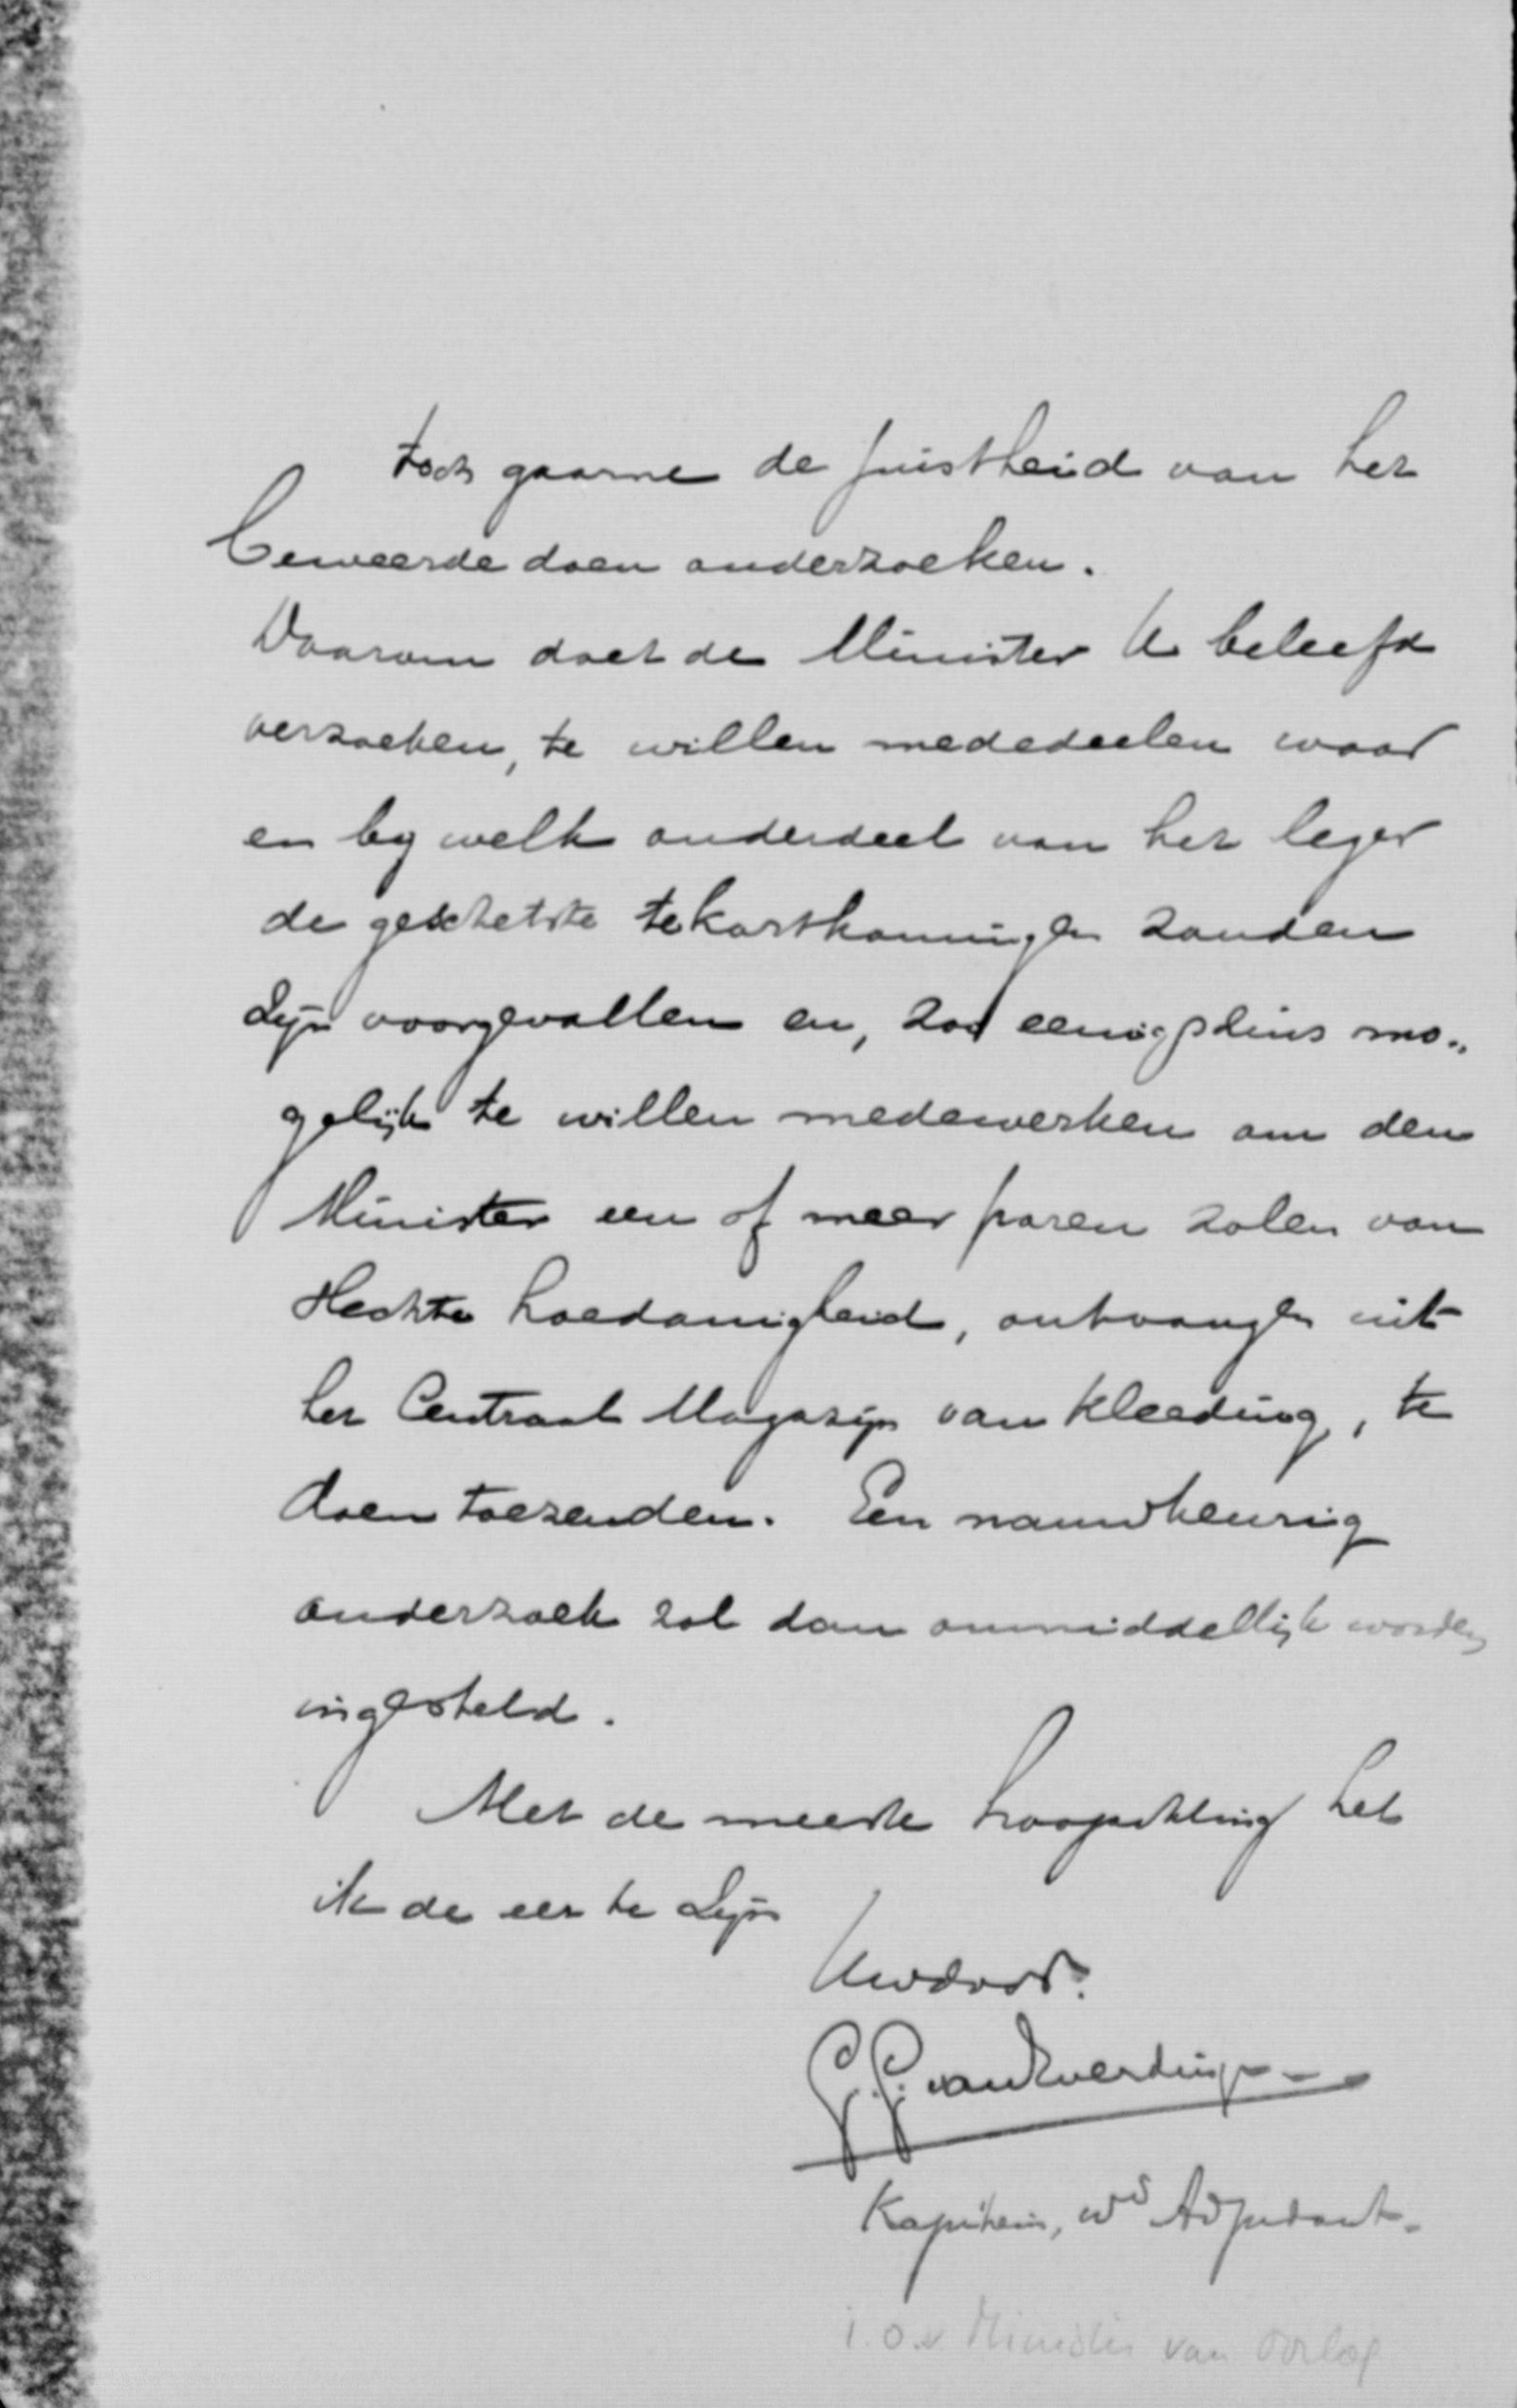 toch gaarne de juistheid van het
beweerde doen onderzoeken.
Daarom doet de Minister U beleefd
verzoeken, te willen mededeelen waar
en by welk onderdeel van het leger
de geschetste tekortkomingen zouden
zijn voorgevallen en, zoo eenigszins mo„
gelijk te willen medewerken om den
Minister een of meer paren zolen van
slechte hoedanigheid, ontvangen uit
het Centraal Magazijn van Kleeding, te
doen toezenden. Een nauwkeurig
onderzoek zal dan onmiddellijk worden
ingesteld.
Met de meeste hoogachting heb
ik de eer te zijn
Uwdwdr.
G.G. van Everdingen
Kapitein, wd Adjudant.
i.o.v. Minister van Oorlog